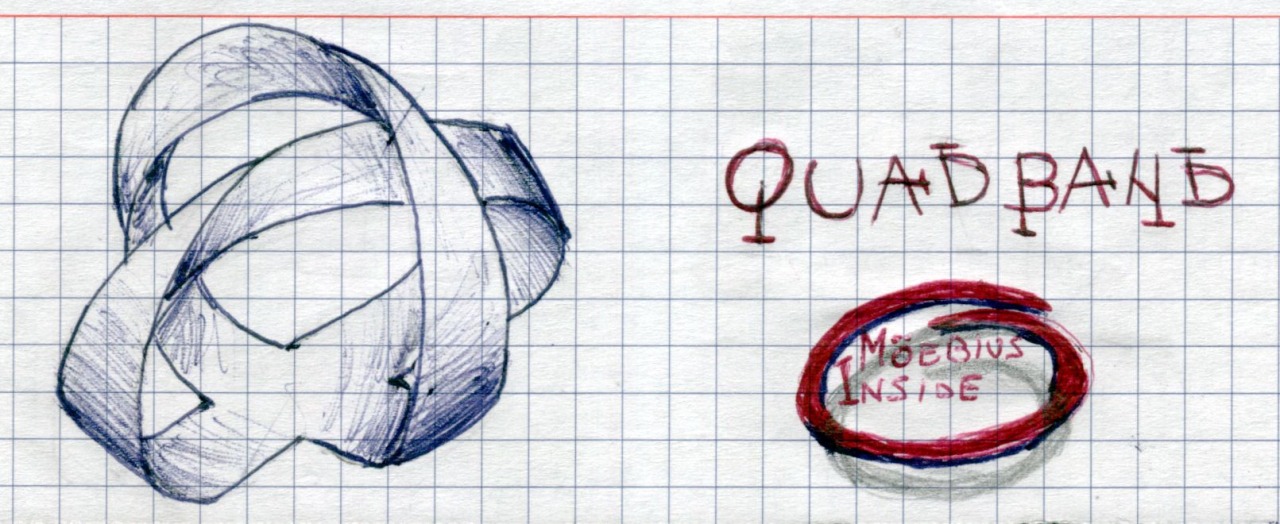 QUADBAND
MÖEBIUS
INSIDE